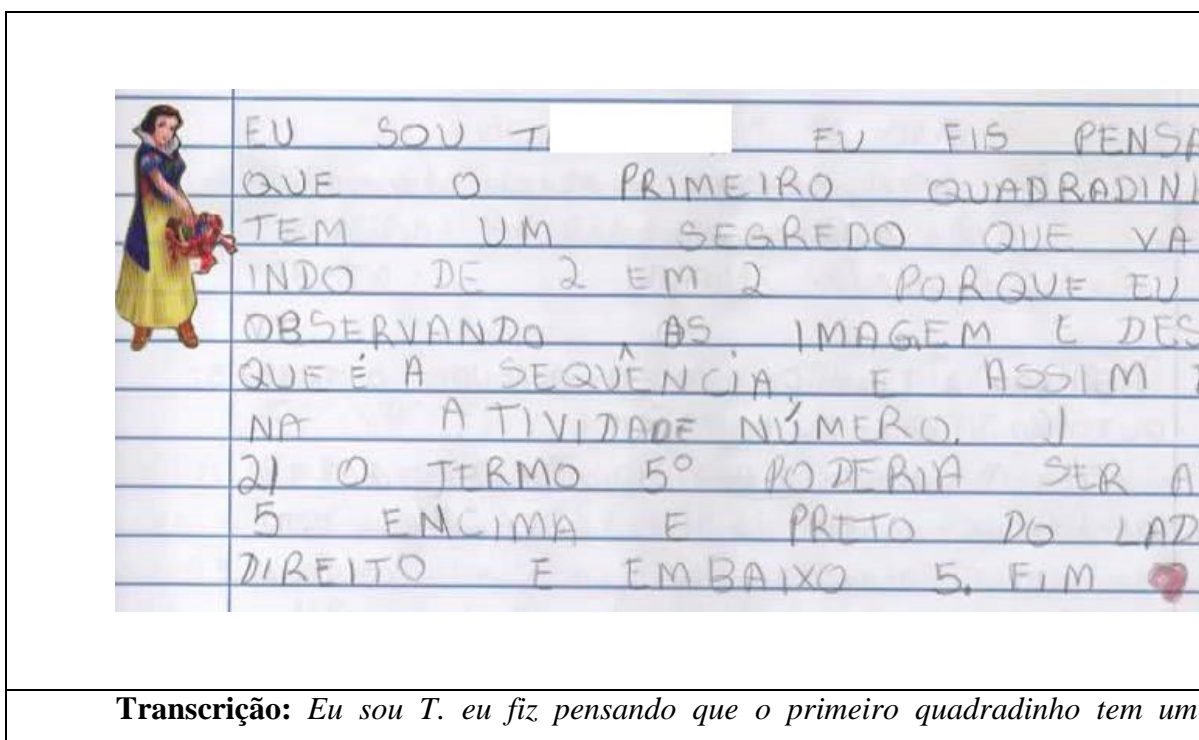 EU SOU T EU FIS PENSA
QUE O PRIMEIRO QUADRADIN
TEM UM SEGREDO QUE VA
INDO DE 2 EM 2 PORQUE EU
OBSERVANDO AS IMAGEM E DES
QUE É A SEQUÊNCIA. E ASSIM
NA ATIVIDADE NÚMERO. 1
2) O TERMO 5º PODERIA SER A
5 ENCIMA E PRETO DO LAD
DIREITO E EMBAIXO 5. FIM
Transcrição: Eu sou T. eu fiz pensando que o primeiro quadradinho tem um